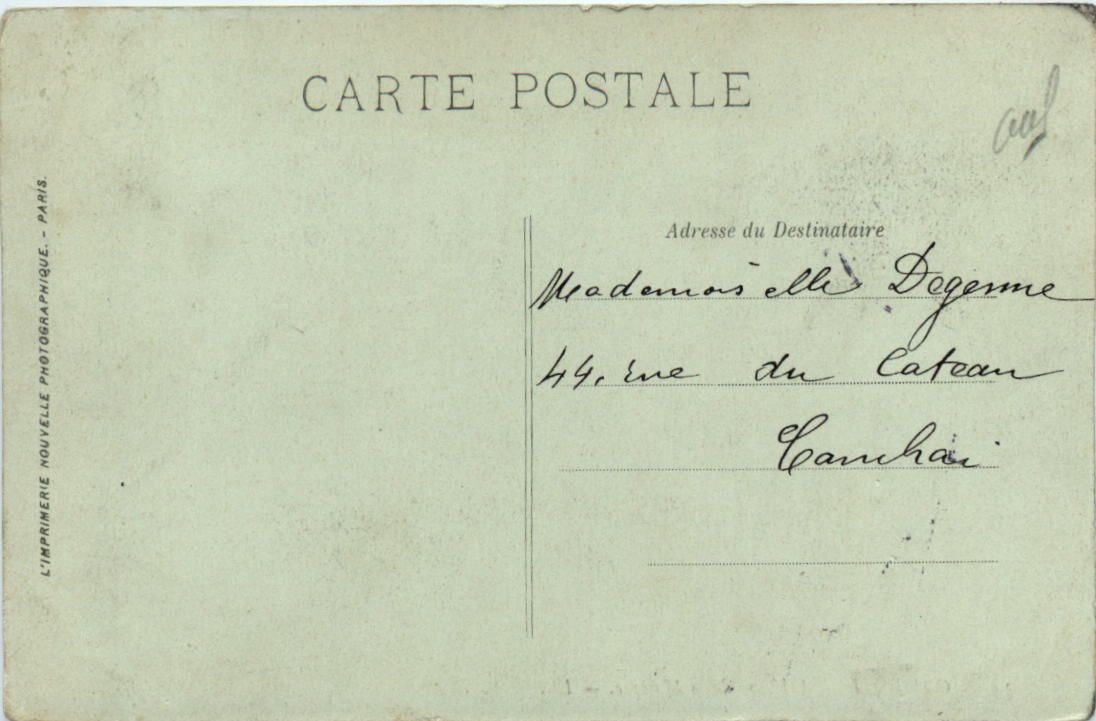 CARTE POSTALE
L'IMPRIMERIE NOUVELLE PHOTOGRAPHIQUE. - PARIS.
Adresse du Destinataire
Mademoiselle Degenne
44, rue du Cateau
Cambrai